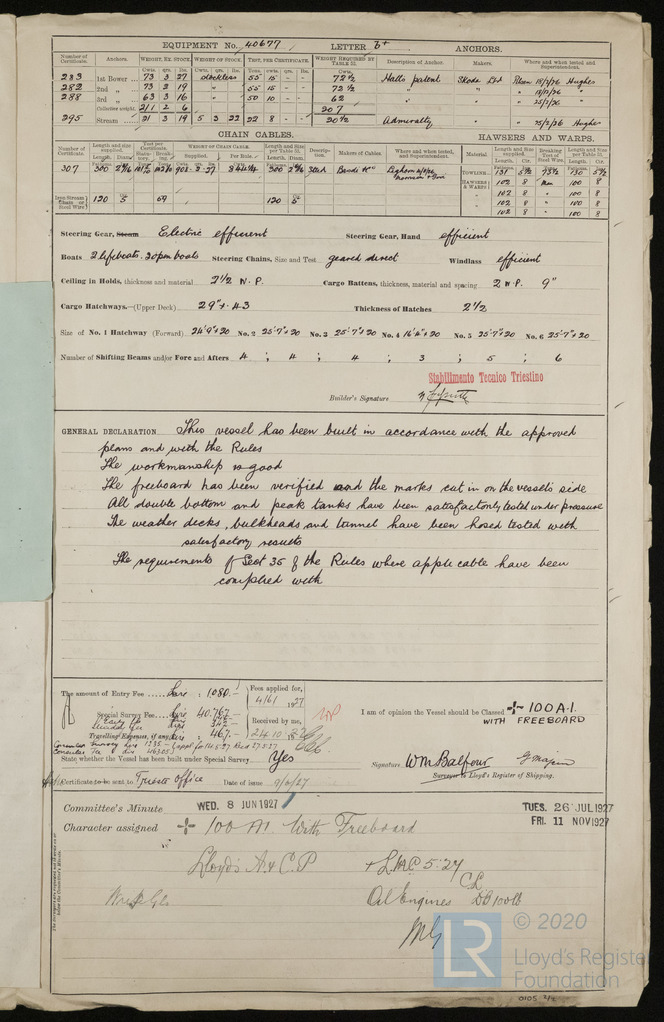 EQUIPMENT No. 40677 LETTER Z+ ANCHORS.
Number of Certificate. Anchors. WEIGHT, EX. STOCK. WEIGHT OF STOCK. TEST, PER CERTIFICATE. WEIGHT REQUIRED BY TABLE 53. Description of Anchor. Makers. Where and when tested and Superintendent.
Cwts. qrs. lbs. Cwts. qrs. lbs. Tons. cwts. qrs. lbs. Cwts.
283 1st Bower 73 3 27 stockless 55 15 - - 72½ Halls patent Skoda Ltd Pilsen 18/2/26 Hughes
282 2nd „ 73 2 19 „ 55 15 - - 72½ „ „ „
288 3rd „ 63 3 16 „ 50 10 - - 62 „ „ „ 25/2/26 „
Collective weight. 211 2 6 207
295 Stream 21 3 19 5 3 22 22 8 - - 20½ Admiralty „ „ 25/2/26 Hughes
CHAIN CABLES. HAWSERS AND WARPS.
Number of Certificate. Length and size supplied. Test per Certificate. WEIGHT OF CHAIN CABLE. Length and size per Table 53. Description. Makers of Cables. Where and when tested, and Superintendent. Material. Length and size supplied. Breaking Test of Steel Wire. Length and size per Table 53.
Length. Diam. Statutory. Breaking. Supplied. Per Rule. Length. Diam. Length. Cir. Length. Cir.
307 300 300 Steel
TOWLINE 131 5½ 73½ 130 5½
HAWSERS & WARPS 102 8 Man 100 8
„ 102 8 „ 100 8
„ 102 8 „ 100 8
„ 102 8 100 8
Iron Stream Chain or Steel Wire 120 5 69 120 5
Steering Gear, Steam Electric efficient Steering Gear, Hand efficient
Boats 2 lifeboats. 2 open boats Steering Chains, Size and Test geared direct Windlass efficient
Ceiling in Holds, thickness and material 2½ W. P. Cargo Battens, thickness, material and spacing 2 W. P. 9"
Cargo Hatchways.—(Upper Deck) 29" & 43 Thickness of Hatches 2½
Size of No. 1 Hatchway (Forward) 24'9" x 20 No. 2 25'7" x 20 No. 3 25'7" x 20 No. 4 16'4" x 20 No. 5 25'7" x 20 No. 6 25'7" x 20
Number of Shifting Beams and/or Fore and Afters 4 ; 4 ; 4 ; 3 ; 5 ; 6
Stabilimento Tecnico Triestino
Builder's Signature
GENERAL DECLARATION This vessel has been built in accordance with the approved
plans and with the Rules
The workmanship is good
The freeboard has been verified and the marks cut in on the vessel's side
All double bottom and peak tanks have been satisfactorily tested under pressure
The weather decks, bulkheads and tunnel have been hosed tested with
satisfactory results
The requirements of Sect 35 of the Rules where applicable have been
complied with
The amount of Entry Fee Lire : 1080.-
Fees applied for,
4/6/ 1927
Special Survey Fee Lire 40.767.-
342.-
Received by me,
Travelling Expenses, if any Lire : 467.-
24.10.1927
I am of opinion the Vessel should be Classed + 100 A.1.
WITH FREEBOARD
State whether the Vessel has been built under Special Survey Yes
Signature WM Balfour
Surveyor to Lloyd's Register of Shipping.
Certificate to be sent to Trieste Office Date of issue 9/6/27
Committee's Minute WED. 8 JUN 1927
TUES. 26 JUL 1927
FRI. 11 NOV 1927
Character assigned + 100 A1. With Freeboard
Lloyd's A & C.P + LMC 5.27
CL
Oil Engines DB 100lb
© 2020
LR
Lloyd's Register
Foundation
0105 2/2